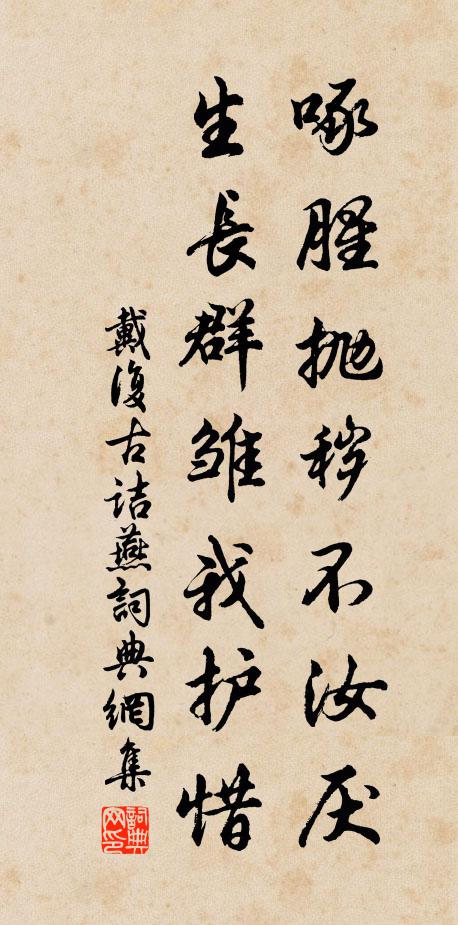 啄腥抛秽不汝厌
生長群雏我护惜
戴復古诘燕詞典網集
詞典网印